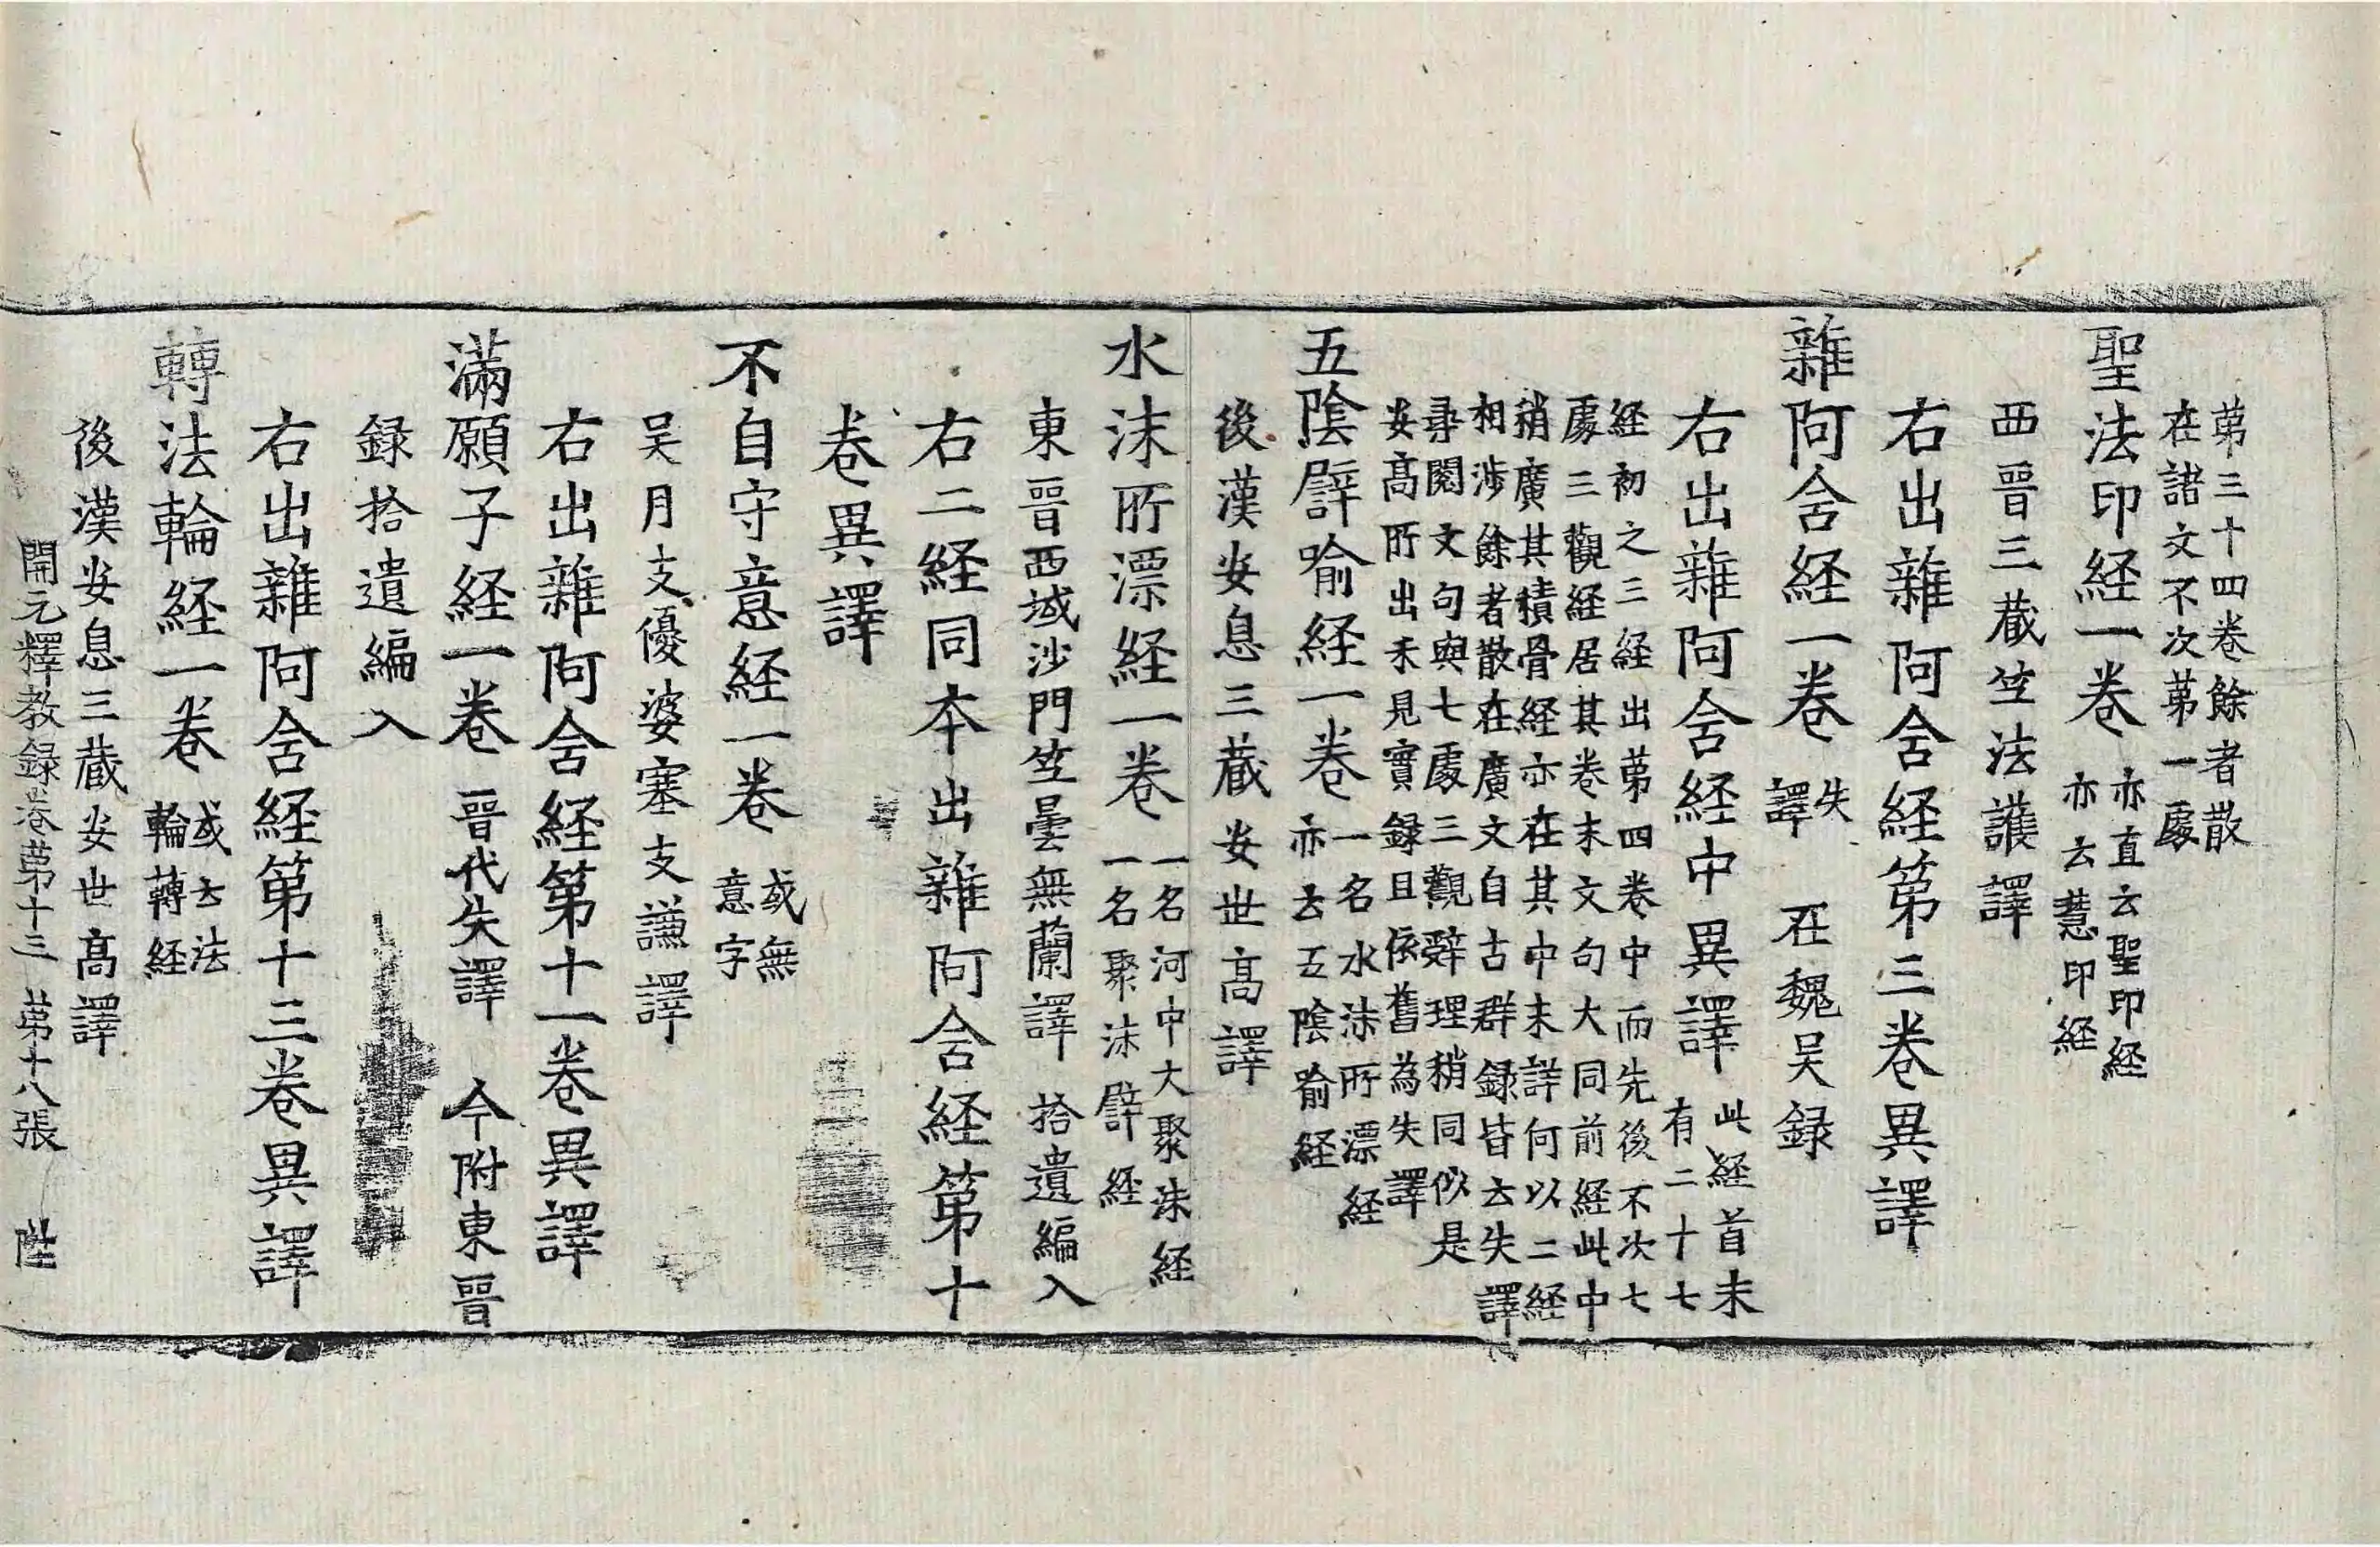 苐三十四卷餘者散
在諸文不次苐一處
聖法印経一卷 亦直云聖印経
亦云慧印経
西晉三蔵竺法護譯
右出雜阿含経第三卷異譯
雜阿含経一卷 失
譯 在魏吴録
右出雜阿含経中異譯 此経首末
有二十七
経初之三経出苐四卷中而先後不次七
處三觀経居其卷末文句大同前経此中
稍廣其積骨経亦在其中未詳何以二経
相涉餘者散在廣文自古群録皆云失譯
尋閲文句與七處三觀辝理稍同似是
安髙所出未見實録且依舊為失譯
五陰譬喻経一卷 一名水沫所漂経
亦云五陰喻経
後漢安息三蔵安世髙譯
水沫所漂経一卷 一名河中大聚沫経
一名聚沫譬経
東晉西域沙門竺曇無蘭譯 拾遺編入
右二経同本出雜阿含経第十
卷異譯
不自守意経一卷 或無
意字
吴月支優婆塞支謙譯
右出雜阿含経第十一卷異譯
滿願子経一卷 晉代失譯 今附東晉
録拾遺編入
右出雜阿含経第十三卷異譯
轉法輪経一卷 或云法
輪轉経
後漢安息三蔵安世髙譯
開元釋教録卷苐十三 苐十八張 陞